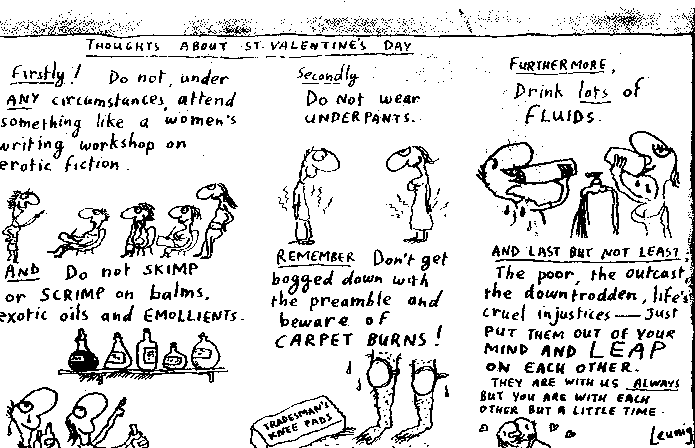 THOUGHTS ABOUT ST. VALENTINE'S DAY
Firstly! Do not, under
ANY circumstances, attend
something like a women's
writing workshop on
erotic fiction.
AND Do not SKIMP
or SCRIMP on balms,
exotic oils and EMOLLIENTS.
Secondly
Do Not wear
UNDERPANTS.
REMEMBER Don't get
bogged down with
the preamble and
beware of
CARPET BURNS!
TRADESMAN'S
KNEE PADS
FURTHERMORE,
Drink lots of
FLUIDS.
AND LAST BUT NOT LEAST,
The poor, the outcast,
the downtrodden, life's
cruel injustices — Just
PUT THEM OUT OF YOUR
MIND AND LEAP
ON EACH OTHER.
THEY ARE WITH US ALWAYS
BUT YOU ARE WITH EACH
OTHER BUT A LITTLE TIME.
Leunig